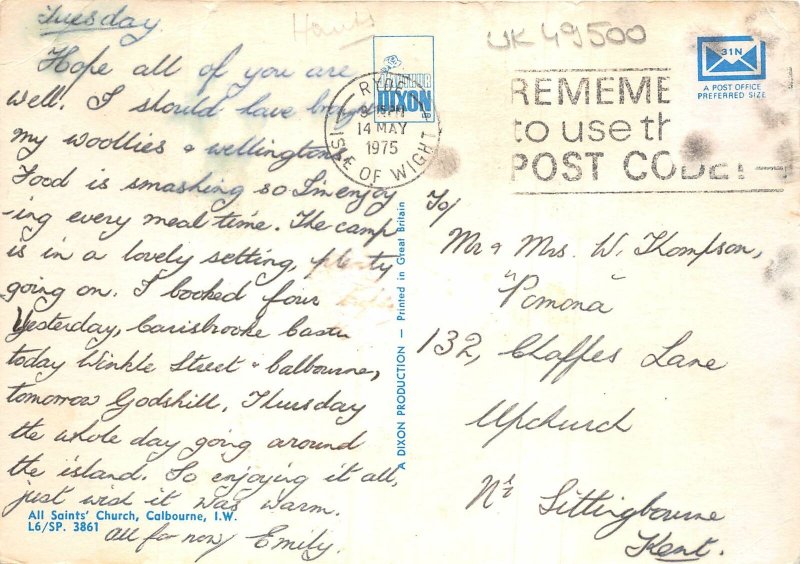 Tuesday.
Hope all of you are
well. I should have brought
my woollies & wellingtons
Food is smashing so I'm enjoy
-ing every meal time. The camp
is in a lovely setting, plenty
going on. I booked four
Yesterday, Carisbrooke
today Winkle Street & Calbourne,
tomorrow Godshill, Thursday
the whole day going around
the island. So enjoying it all,
just wish it was warm.
All for now, Emily.
All Saints' Church, Calbourne, I.W.
L6/SP. 3861
A DIXON PRODUCTION — Printed in Great Britain
Hants
DIXON
RYDE
14 MAY
1975
ISLE OF WIGHT
UK 49500
REMEME
to use th
POST CODE
31N
A POST OFFICE
PREFERRED SIZE
To/
Mr & Mrs. W. Thompson,
"Pomona"
132, Chaffes Lane
Upchurch
Nr Sittingbourne
Kent.